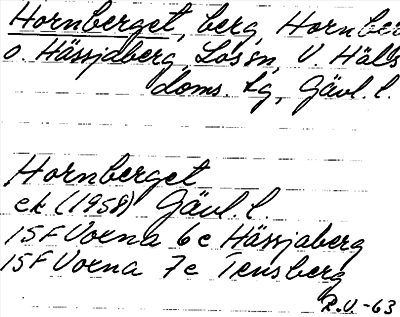 Hornberget, berg, Hornber
o. Hässjaberg, Los sn, V. Häls
doms. lg, Gävl. l.
Hornberget
ek (1958) Gävl. l.
15F Voxna 6c Hässjaberg
15F Voxna 7c Tensberg
R.U.-63